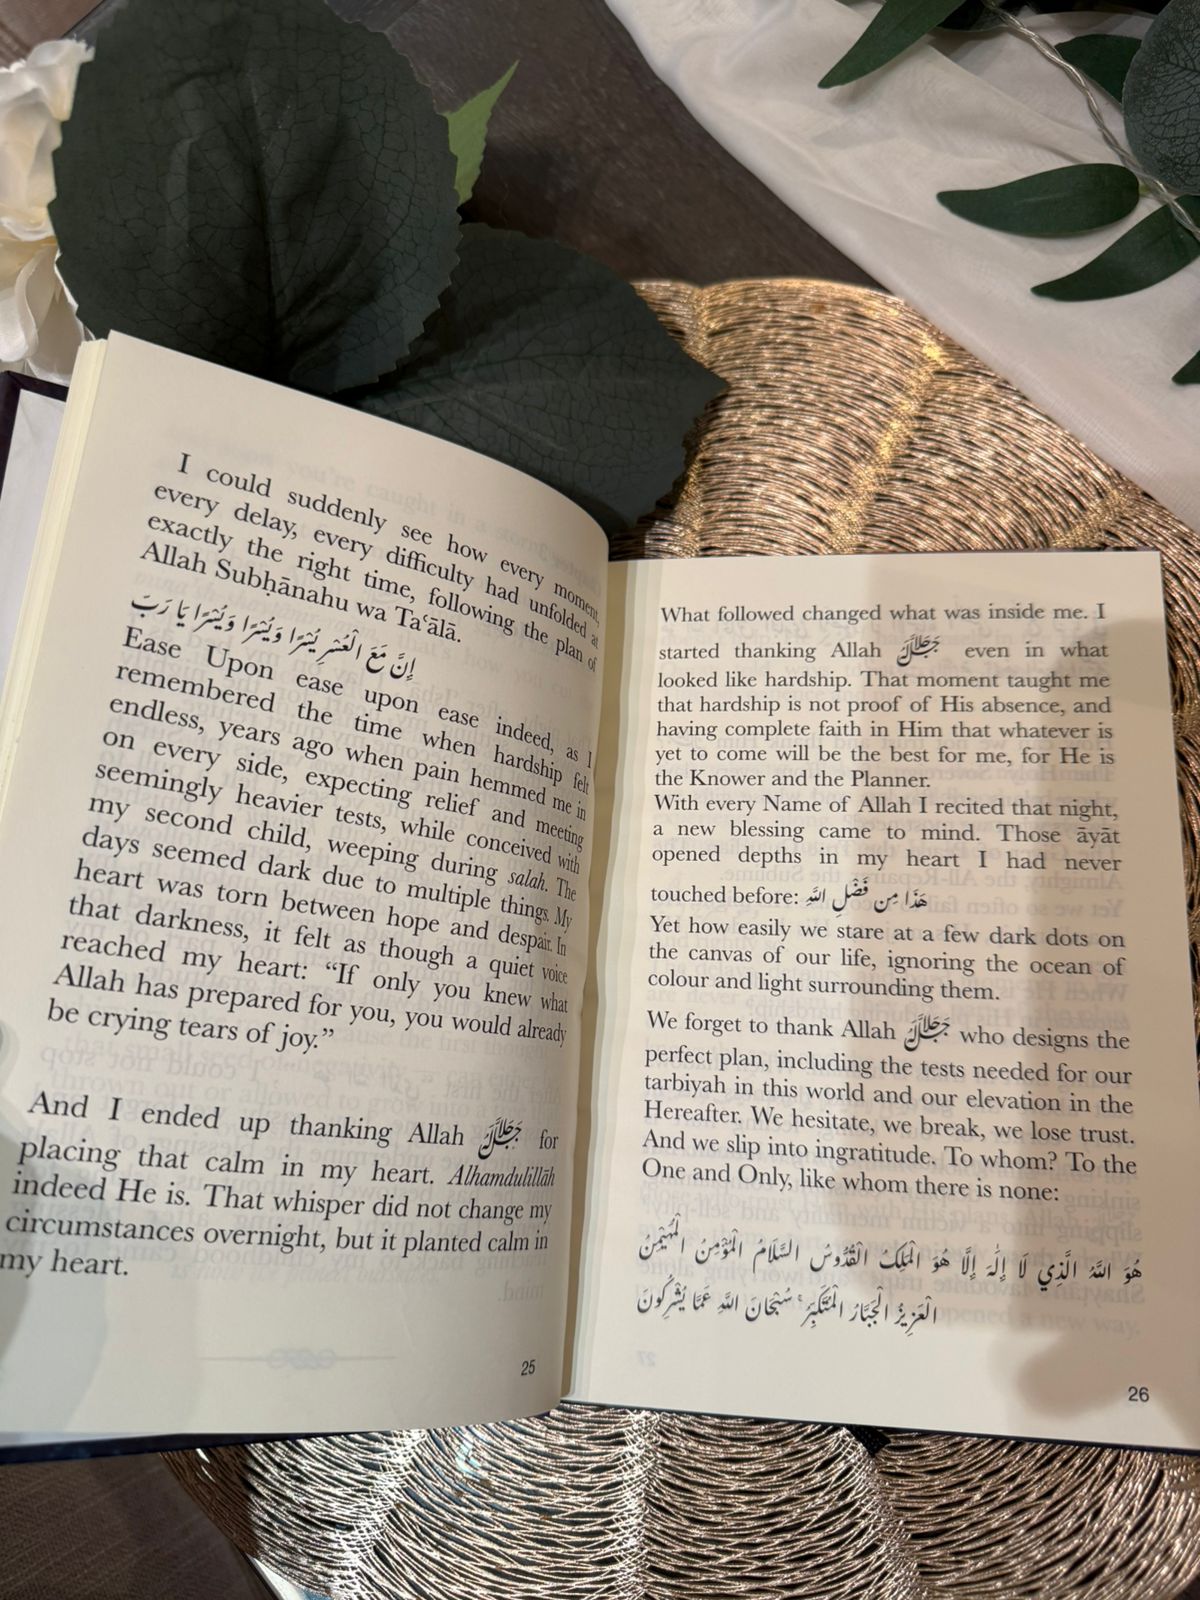 I could suddenly see how every moment,
every delay, every difficulty had unfolded at
exactly the right time, following the plan of
Allah Subḥānahu wa Taʿālā.
إِنَّ مَعَ الْعُسْرِ يُسْرًا وَيُسْرًا وَيُسْرًا يَا رَبّ
Ease Upon ease upon ease indeed, as I
remembered the time when hardship felt
endless, years ago when pain hemmed me in
on every side, expecting relief and meeting
seemingly heavier tests, while conceived with
my second child, weeping during salah. The
days seemed dark due to multiple things. My
heart was torn between hope and despair. In
that darkness, it felt as though a quiet voice
reached my heart: “If only you knew what
Allah has prepared for you, you would already
be crying tears of joy.”
And I ended up thanking Allah جَلَّ جَلَالُهُ for
placing that calm in my heart. Alhamdulillāh
indeed He is. That whisper did not change my
circumstances overnight, but it planted calm in
my heart.
25
What followed changed what was inside me. I
started thanking Allah جَلَّ جَلَالُهُ even in what
looked like hardship. That moment taught me
that hardship is not proof of His absence, and
having complete faith in Him that whatever is
yet to come will be the best for me, for He is
the Knower and the Planner.
With every Name of Allah I recited that night,
a new blessing came to mind. Those āyāt
opened depths in my heart I had never
touched before: هَذَا مِن فَضْلِ اللَّهِ
Yet how easily we stare at a few dark dots on
the canvas of our life, ignoring the ocean of
colour and light surrounding them.
We forget to thank Allah جَلَّ جَلَالُهُ who designs the
perfect plan, including the tests needed for our
tarbiyah in this world and our elevation in the
Hereafter. We hesitate, we break, we lose trust.
And we slip into ingratitude. To whom? To the
One and Only, like whom there is none:
هُوَ اللَّهُ الَّذِي لَا إِلَٰهَ إِلَّا هُوَ الْمَلِكُ الْقُدُّوسُ السَّلَامُ الْمُؤْمِنُ الْمُهَيْمِنُ
الْعَزِيزُ الْجَبَّارُ الْمُتَكَبِّرُ ۚ سُبْحَانَ اللَّهِ عَمَّا يُشْرِكُونَ
26